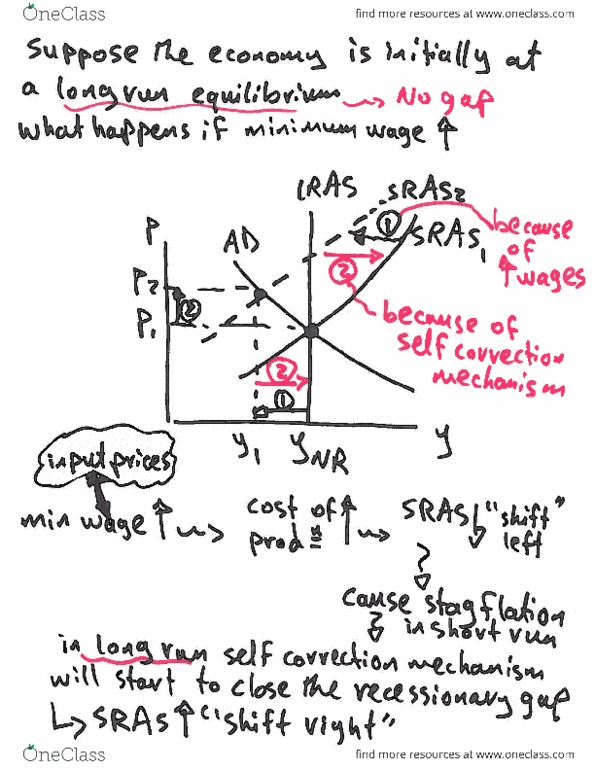 OneClass
find more resources at www.oneclass.com
suppose the economy is initially at
a long run equilibrium → No gap
what happens if minimum wage ↑
P
AD
LRAS
SRAS2
SRAS1
①
because
of
↑ wages
②
P2
②
P1
because of
self correction
mechanism
②
①
y1
yNR
y
input prices
min wage ↑ → cost of prodn ↑ → SRAS ↓ "shift left"
cause stagflation
in short run
in long run self correction mechanism
will start to close the recessionary gap
↳ SRAS ↑ "shift right"
OneClass
find more resources at www.oneclass.com